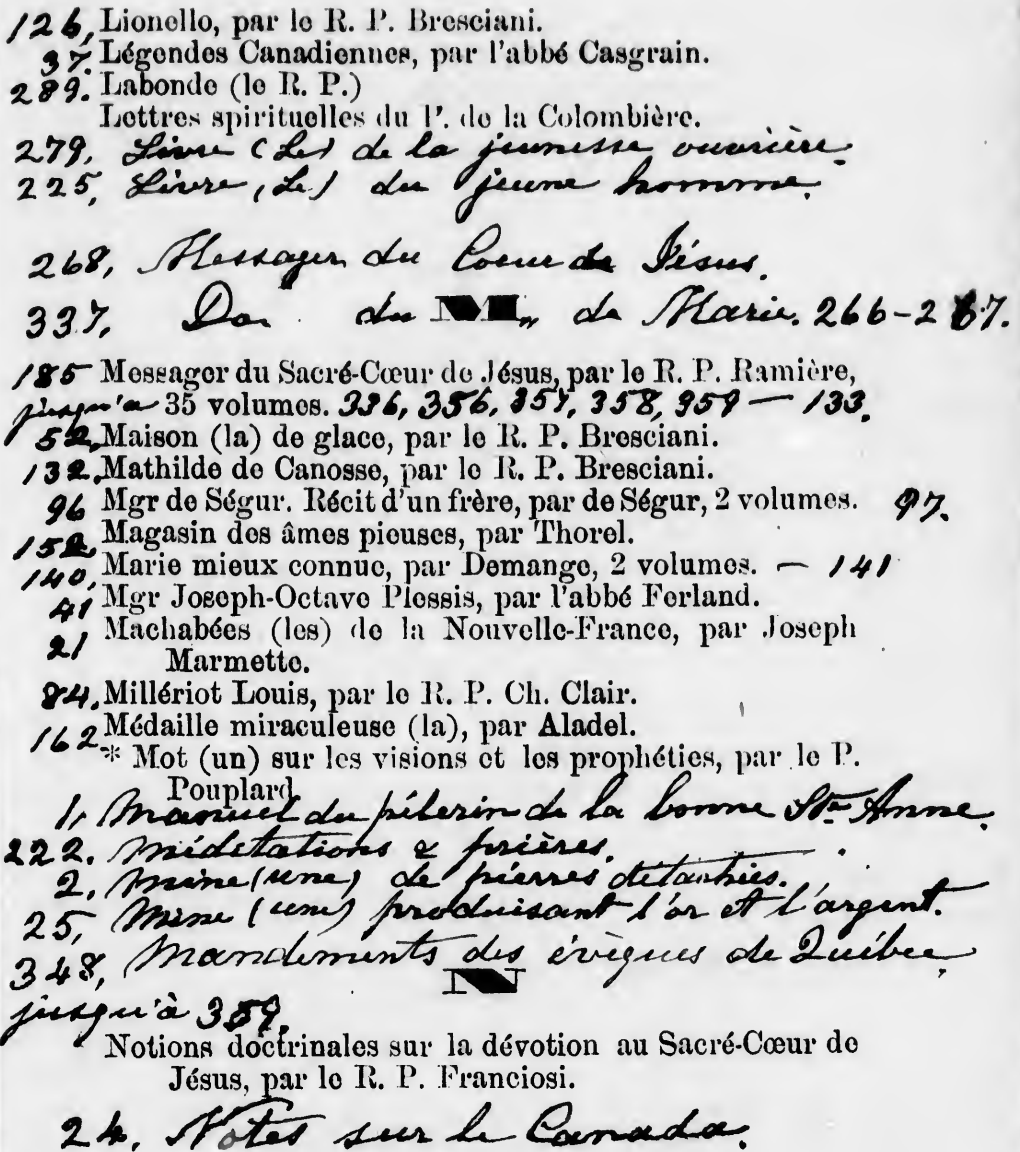 126, Lionello, par le R. P. Bresciani.
37. Légendes Canadiennes, par l'abbé Casgrain.
289. Labonde (le R. P.)
Lettres spirituelles du P. de la Colombière.
279, Livre (Le) de la jeunesse ouvrière.
225, Livre, (Le) du jeune homme.
268, Messager du Coeur de Jésus.
337, Do. du M „ de Marie. 266-267.
185 Messager du Sacré-Cœur de Jésus, par le R. P. Ramière,
jusqu'a 35 volumes. 336, 356, 357, 358, 359 — 133.
52, Maison (la) de glace, par le R. P. Bresciani.
132, Mathilde de Canosse, par le R. P. Bresciani.
96 Mgr de Ségur. Récit d'un frère, par de Ségur, 2 volumes. 97.
152, Magasin des âmes pieuses, par Thorel.
140, Marie mieux connue, par Demange, 2 volumes. — 141
41 Mgr Joseph-Octave Plessis, par l'abbé Ferland.
21 Machabées (les) de la Nouvelle-France, par Joseph
Marmette.
84, Millériot Louis, par le R. P. Ch. Clair.
162 Médaille miraculeuse (la), par Aladel.
* Mot (un) sur les visions et les prophéties, par le P.
Pouplard.
1, Manuel du pélerin de la bonne Ste Anne.
222. Méditations & prières.
2, Mine (une) de pierres détachées.
25, Mine (une) produisant l'or et l'argent.
348, Mandements des évèques de Québec
N
jusqu'à 359.
Notions doctrinales sur la dévotion au Sacré-Cœur de
Jésus, par le R. P. Franciosi.
24, Notes sur le Canada.